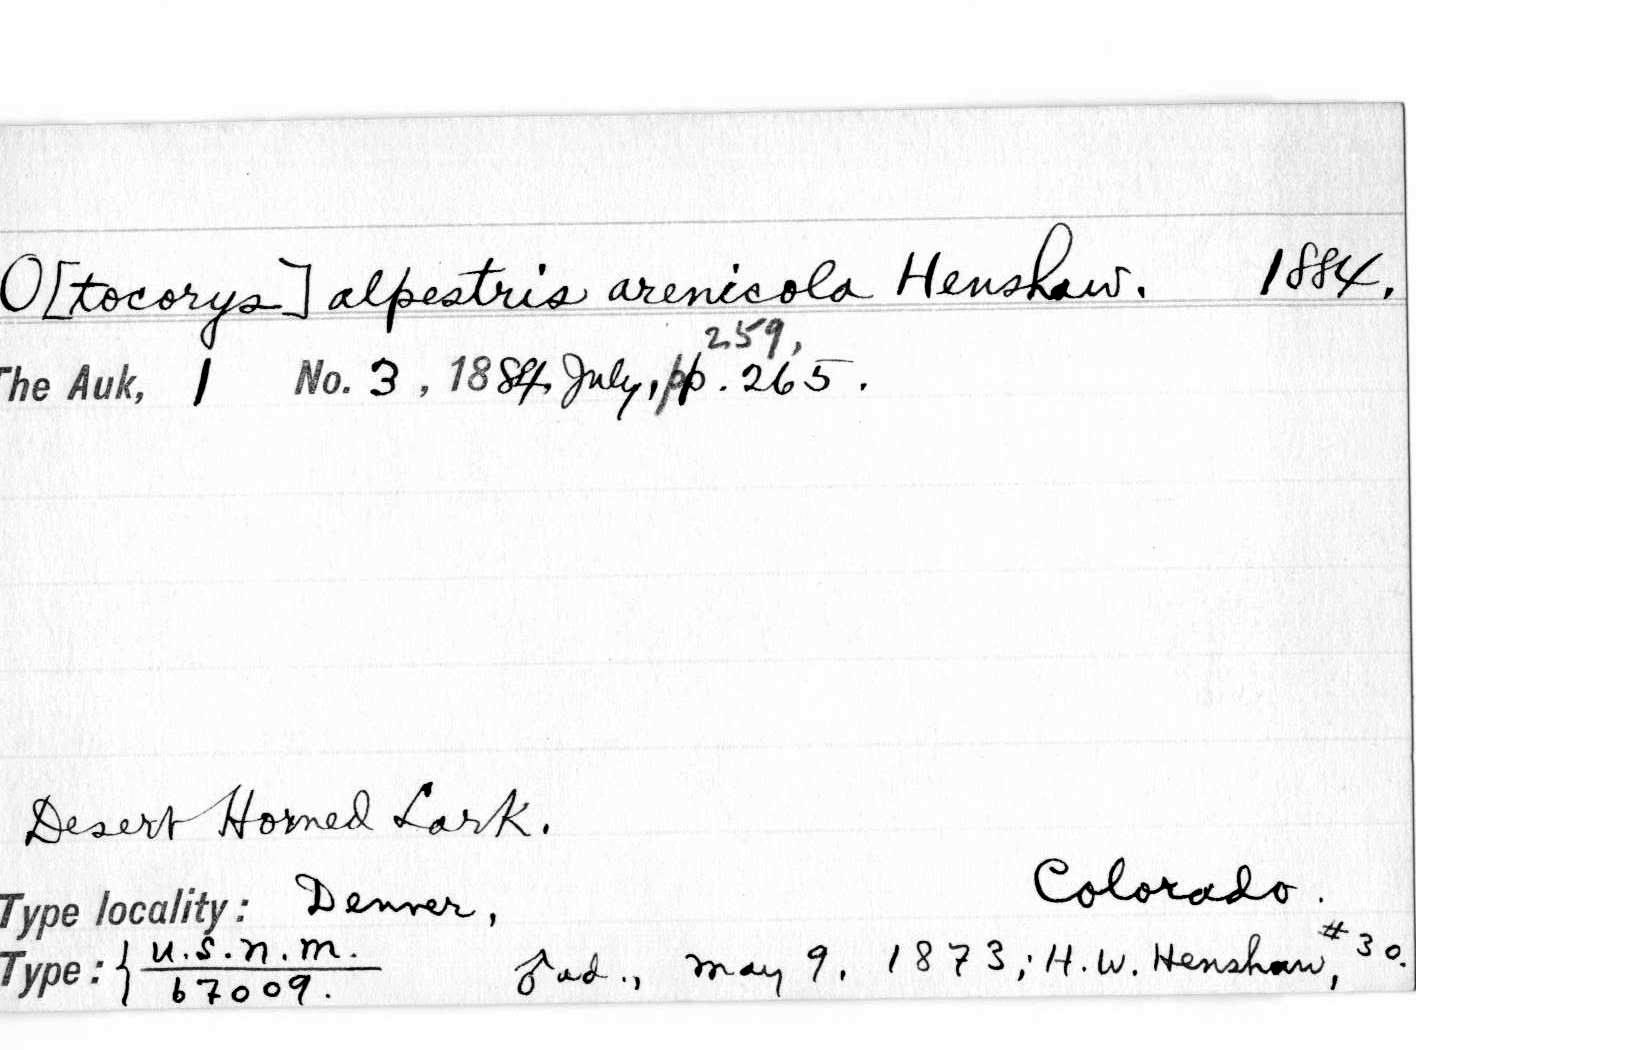 O[tocorys] alpestris arenicola Henshaw. 1884.
259,
The Auk, 1 No. 3, 1884, July, pp. 265.
Desert Horned Lark.
Colorado.
Type locality: Denver,
Type: { U.S.N.M.
67009. ♂ ad., May 9, 1873; H. W. Henshaw, #30.